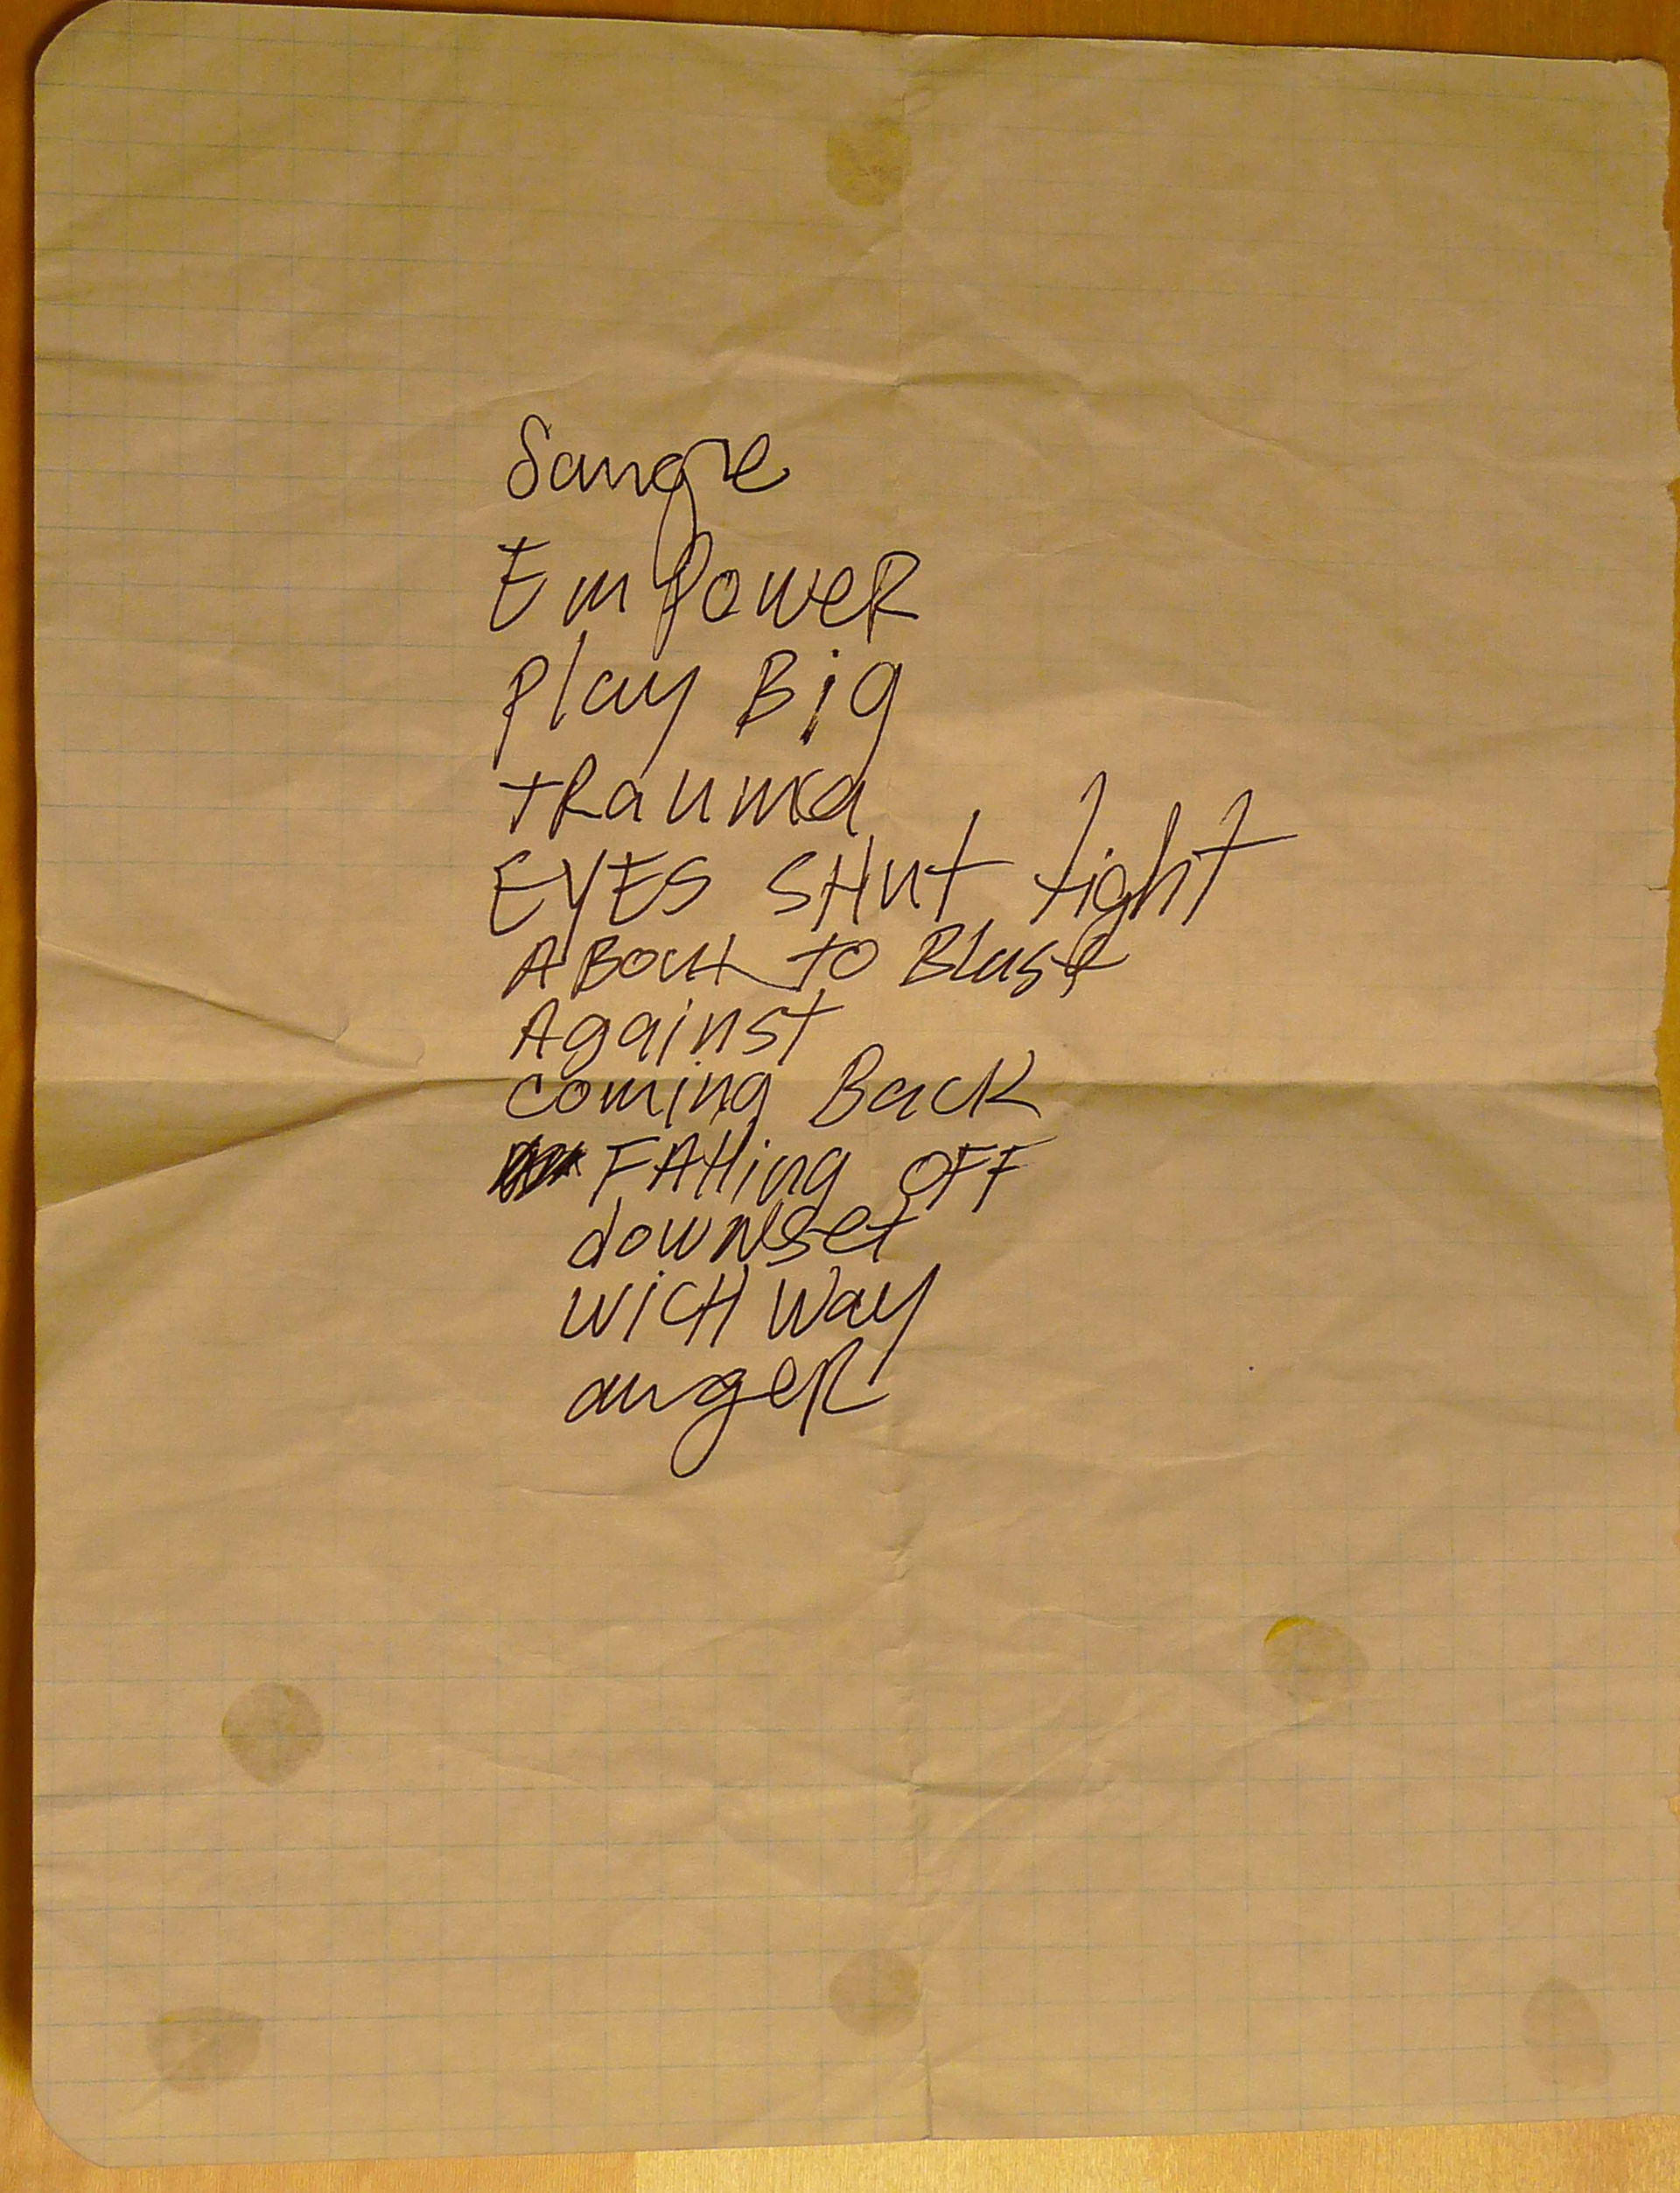 Sangre
EmPoweR
Play Big
tRauma
EYES SHut tight
ABout to Blast
Against
coming Back
FAlling OFF
downset
wicH Way
angeR